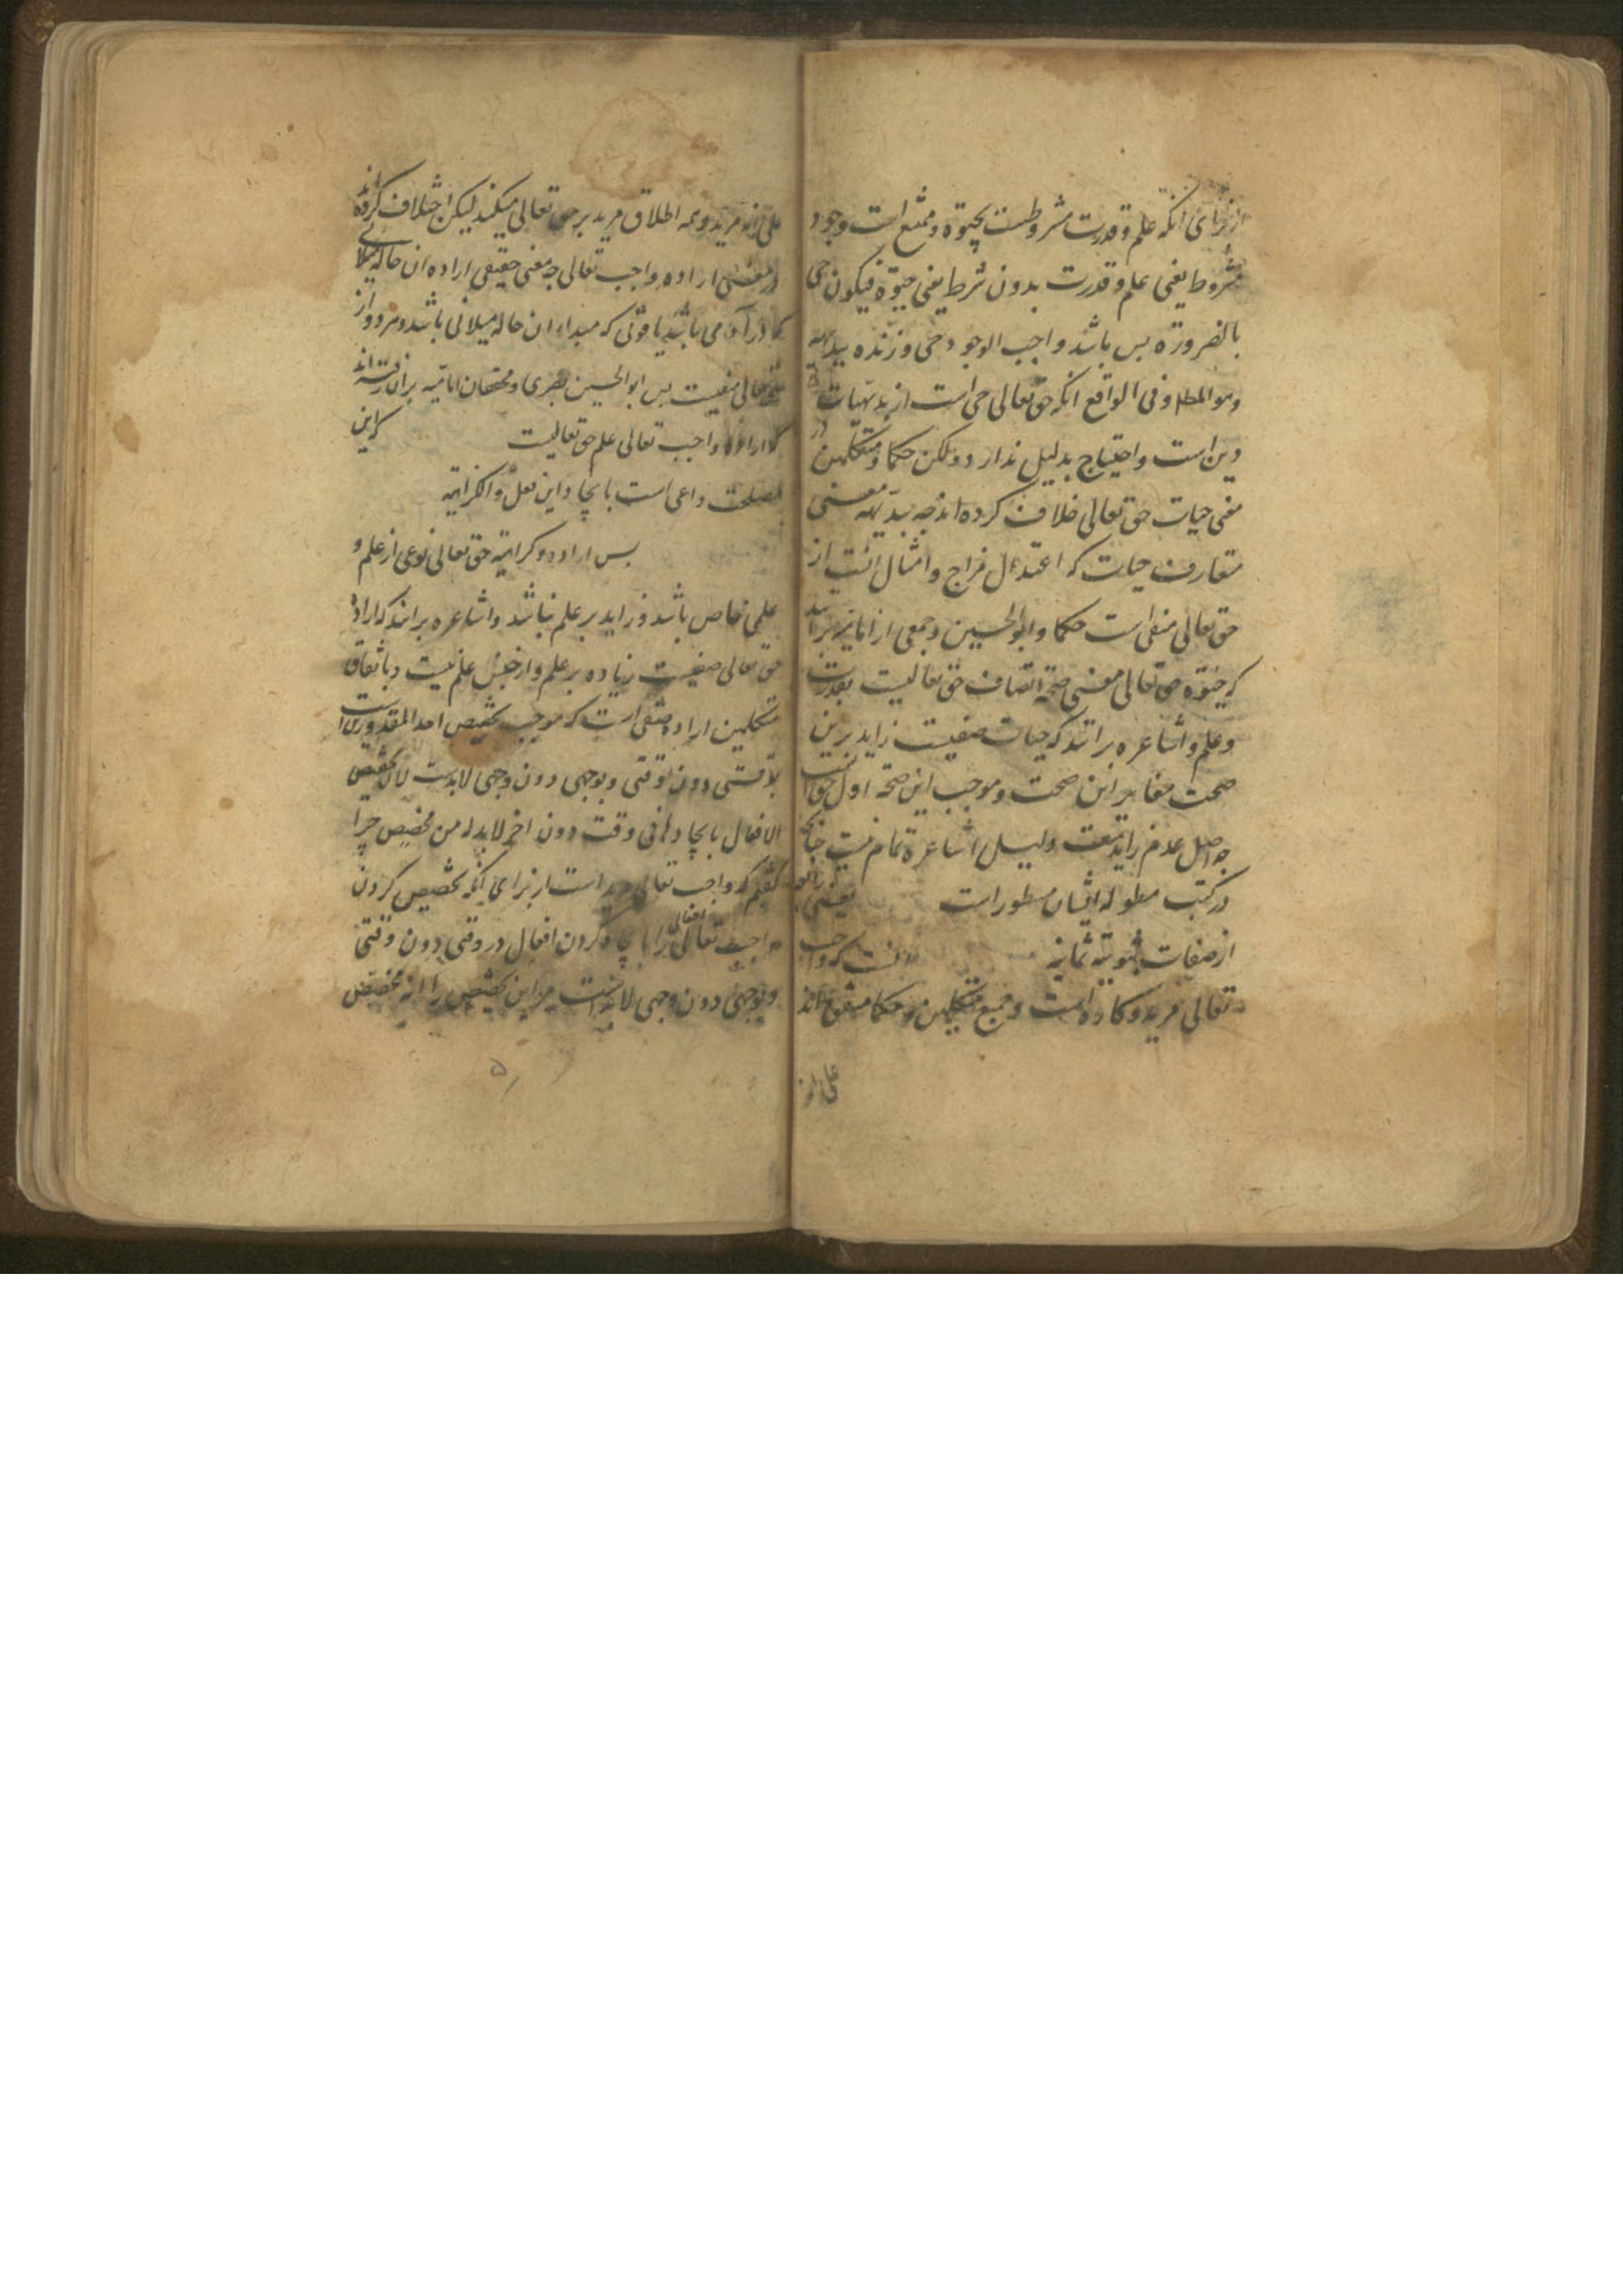 از برای انکه علم و قدرت مشروطست بحیوة و ممتنع است وجود
مشروط یعنی علم و قدرت بدون شرط یعنی حیوة فیکون حی
بالضرورة پس باشد واجب الوجود حی و زنده ببدیهه
وهو المطلوب و فی الواقع انکه حق تعالی حی است از بدیهیات
دین است و احتیاج بدلیل ندارد و لکن حکما و متکلمین در
معنی حیات حق تعالی خلاف کرده اند چه ببدیهه معنی
متعارف حیات که اعتدال مزاج و امثال انست از
حق تعالی منفی است حکما و ابوالحسین و جمعی از امامیه برانند
که حیوة حق تعالی معنی صحة اتصاف حق تعالیست بقدرت
و علم و اشاعره برانند که حیات صفیست زاید برین
صحت مغایر این صحت و موجب این صحة اول حق است
چه اصل عدم زاید است و دلیل اشاعره تمام نیست چنانچه
در کتب مطوله ایشان مسطور است یعنی رابع
از صفات ثبوتیه ثمانیه انست که واجب
تعالی مرید و کاره است و جمیع متکلمین و حکما متفق اند
علی انه
علی انه مرید و همه اطلاق مرید بر حق تعالی میکنند لیکن اختلاف کرده اند
در معنی اراده واجب تعالی چه معنی حقیقی اراده ان حاله میلانی
که در آدمی باشد یا قوتی که مبداء ان حاله میلانی باشد و هر دو از
حق تعالی منفیست پس ابوالحسین بصری و محققان امامیه بران رفته اند
که اراده واجب تعالی علم حق تعالیست که این
مصلحت داعی است بایجاد این فعل و الکراهیه
پس اراده و کراهیه حق تعالی نوعی از علم و
علمی خاص باشد و زاید بر علم نباشد و اشاعره برانند که اراده
حق تعالی صفیست زیاده بر علم و از جنس علم نیست و باتفاق
متکلمین اراده صفتی است که موجب تخصیص احد المقدورین است
بوقتی دون وقتی و بوجهی دون وجهی لابدست لان تخصیص
الافعال بایجادها فی وقت دون اخر لابد له من مخصص چرا
گفتیم که واجب تعالی مرید است از برای انکه تخصیص کردن
واجب تعالی افعال را بایجاد کردن افعال در وقتی دون وقتی
و بوجهی دون وجهی لابد است مر این تخصیص را از مخصص